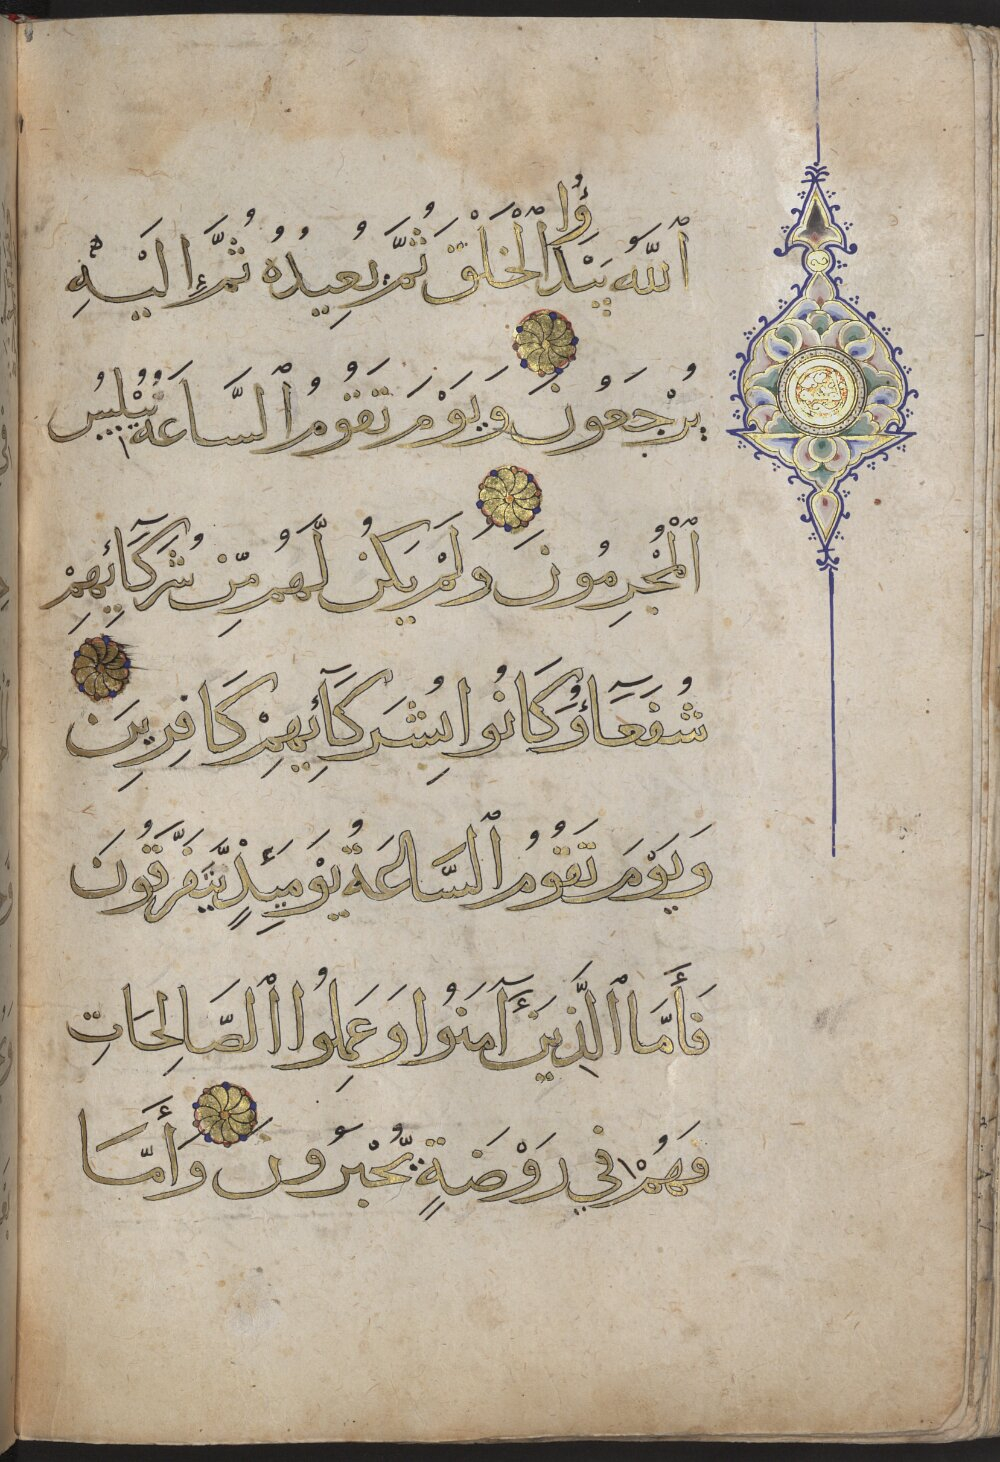 ٱللَّهُ يَبْدَؤُا ٱلْخَلْقَ ثُمَّ يُعِيدُهُ ثُمَّ إِلَيْهِ
يُرْجَعُونَ وَيَوْمَ تَقُومُ ٱلسَّاعَةُ يُبْلِسُ
ٱلْمُجْرِمُونَ وَلَمْ يَكُن لَّهُم مِّن شُرَكَآئِهِمْ
شُفَعَآؤُ وَكَانُوا بِشُرَكَآئِهِمْ كَافِرِينَ
وَيَوْمَ تَقُومُ ٱلسَّاعَةُ يَوْمَئِذٍ يَتَفَرَّقُونَ
فَأَمَّا ٱلَّذِينَ ءَآمَنُوا وَعَمِلُوا ٱلصَّالِحَاتِ
فَهُمْ فِي رَوْضَةٍ يُحْبَرُونَ وَأَمَّا